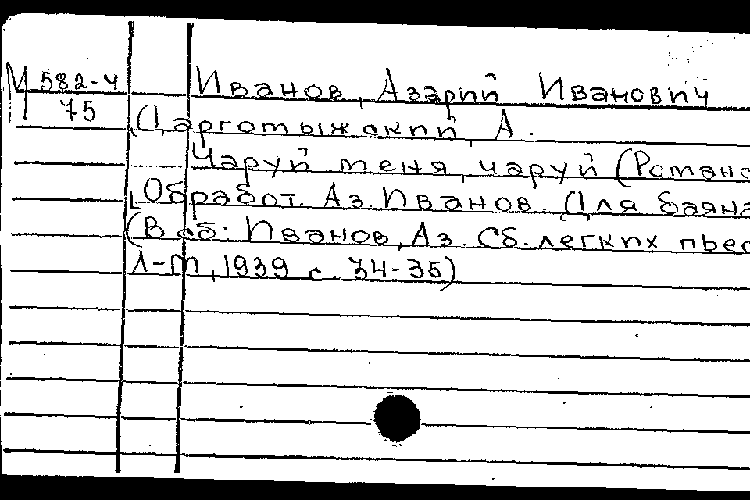 М 582-4
75
Иванов, Азарий Иванович
[Царготыжский, А.
Чаруй меня, чаруй (Романс
Обработ. Аз. Иванов. Для баяна
(В сб: Иванов, Аз. Сб. легких пьес
Л-М, 1939 с. 34-35)